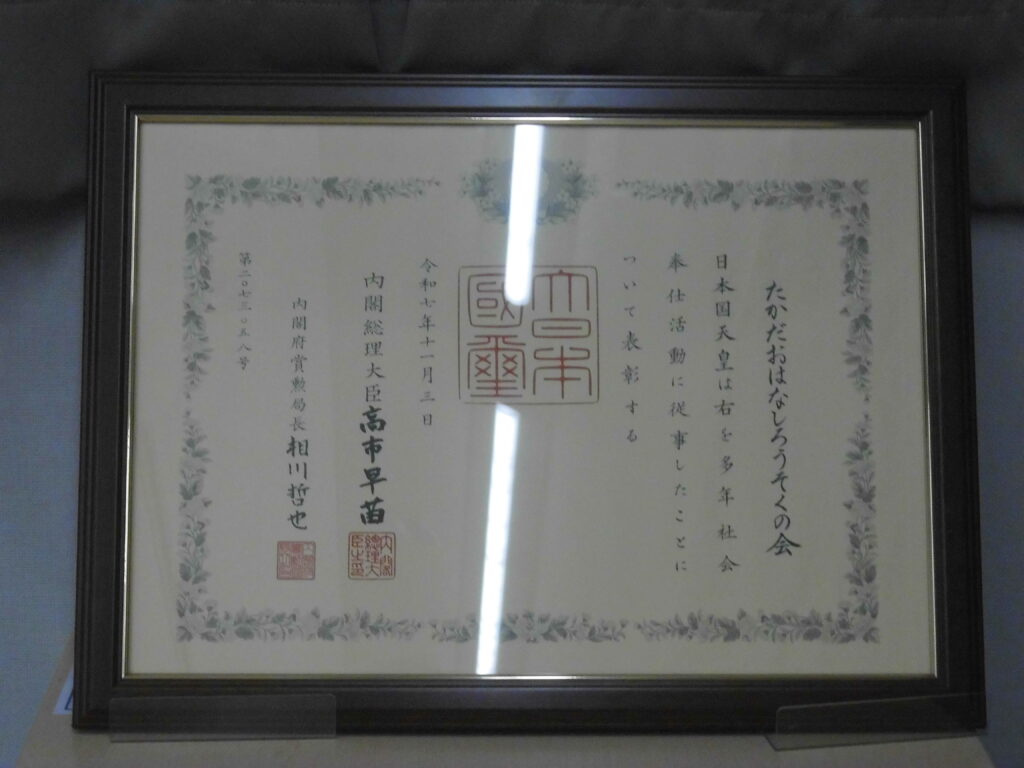 たかだおはなしろうそくの会
日本国天皇は右を多年社会
奉仕活動に従事したことに
ついて表彰する
大日本國璽
令和七年十一月三日
内閣総理大臣高市早苗
内閣總理大臣之印
内閣府賞勲局長相川哲也
第二〇七三〇五八号